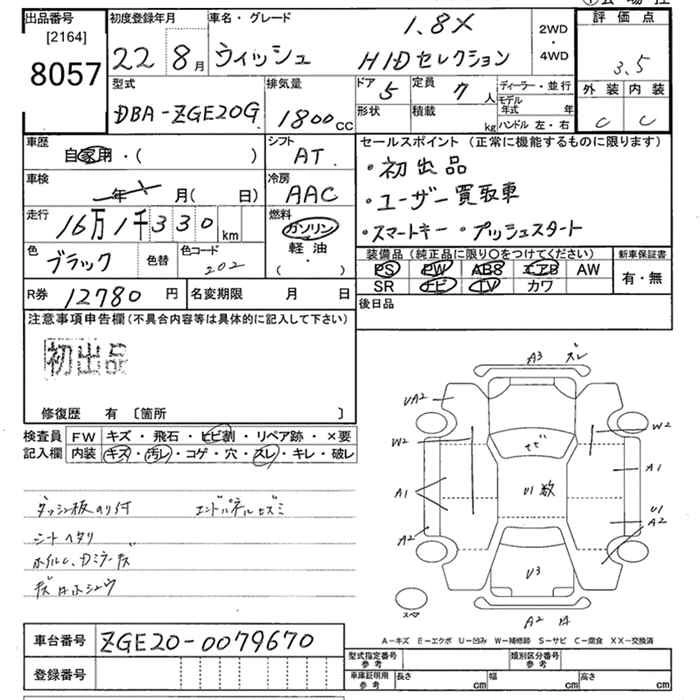 出品番号
[2164]
8057
初度登録年月
22 8月
車名・グレード
ウィッシュ
1.8X
HIDセレクション
2WD
・
4WD
評価点
3.5
外装 内装
C C
型式
DBA-ZGE20G
排気量
1800cc
ドア 5
定員 7人
形状
積載 kg
ディーラー・並行
モデル年式 年
ハンドル 左・右
車歴
自家用・( )
シフト
AT
車検
年 月( 日)
冷房
AAC
走行
16万1千330km
燃料
ガソリン
軽油
( ・ )
色
ブラック
色替
色コード
202
セールスポイント (正常に機能するものに限ります)
・初出品
・ユーザー買取車
・スマートキー ・プッシュスタート
装備品 (純正品に限り○をつけてください)
PS PW ABS エアB AW
SR ナビ TV カワ
新車保証書
有・無
R券 12780円
名変期限 月 日
後日品
注意事項申告欄 (不具合内容等は具体的に記入して下さい)
初出品
修復歴 有 〔箇所 〕
検査員
記入欄
FW キズ・飛石・ヒビ割・リペア跡・×要
内装 キズ・汚レ・コゲ・穴・スレ・キレ・破レ
ダッシュ板のり付
エンドパネルヒズミ
シートヘタリ
A3 ズレ
UA2
W2
W2
A1
A1
U1
A2
A2
U1数
U3
A2
スペア
A-キズ E-エクボ U-凹み W-補修跡 S-サビ C-腐食 XX-交換済
車台番号 ZGE20-0079670
登録番号
型式指定番号
参考
類別区分番号
参考
車庫証明用
参考
長さ cm 幅 cm 高さ cm